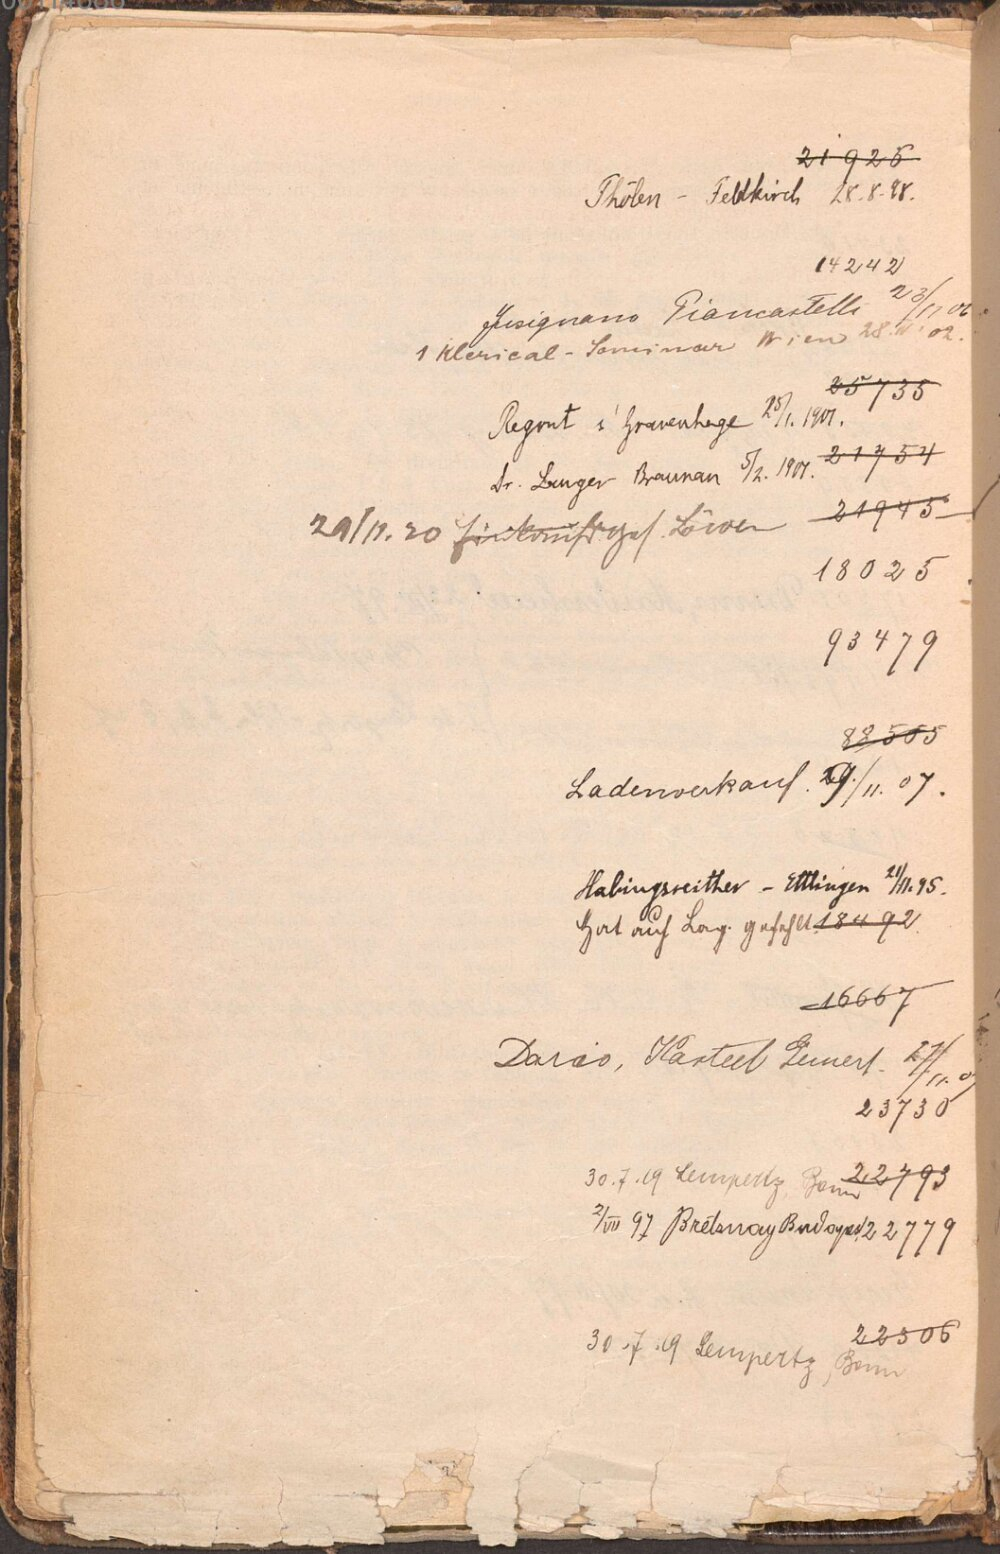 21925
Thölen - Feldkirch 28.8.98.
14242
Fusignano Piancastelli 23/11 06
1 Klerical-Seminar Wien 28. 02.
25735
Regout s'Gravenhage 25/1. 1901.
21754
Dr. Langer Braunau 5/2. 1901.
21945
29/11.20 Löwen
18025
93479
88505
Ladenverkauf. 29./11. 07.
Habingsreither - Ettlingen 21/11.95.
Hat auf Lag. gefehlt 18492
16667
Dario, Kasteel Gemert. 27/11.0
23730
22793
30.7.19 Lempertz, Bonn
2/VII 97 Budapest 22779
22306
30.7.19 Lempertz, Bonn